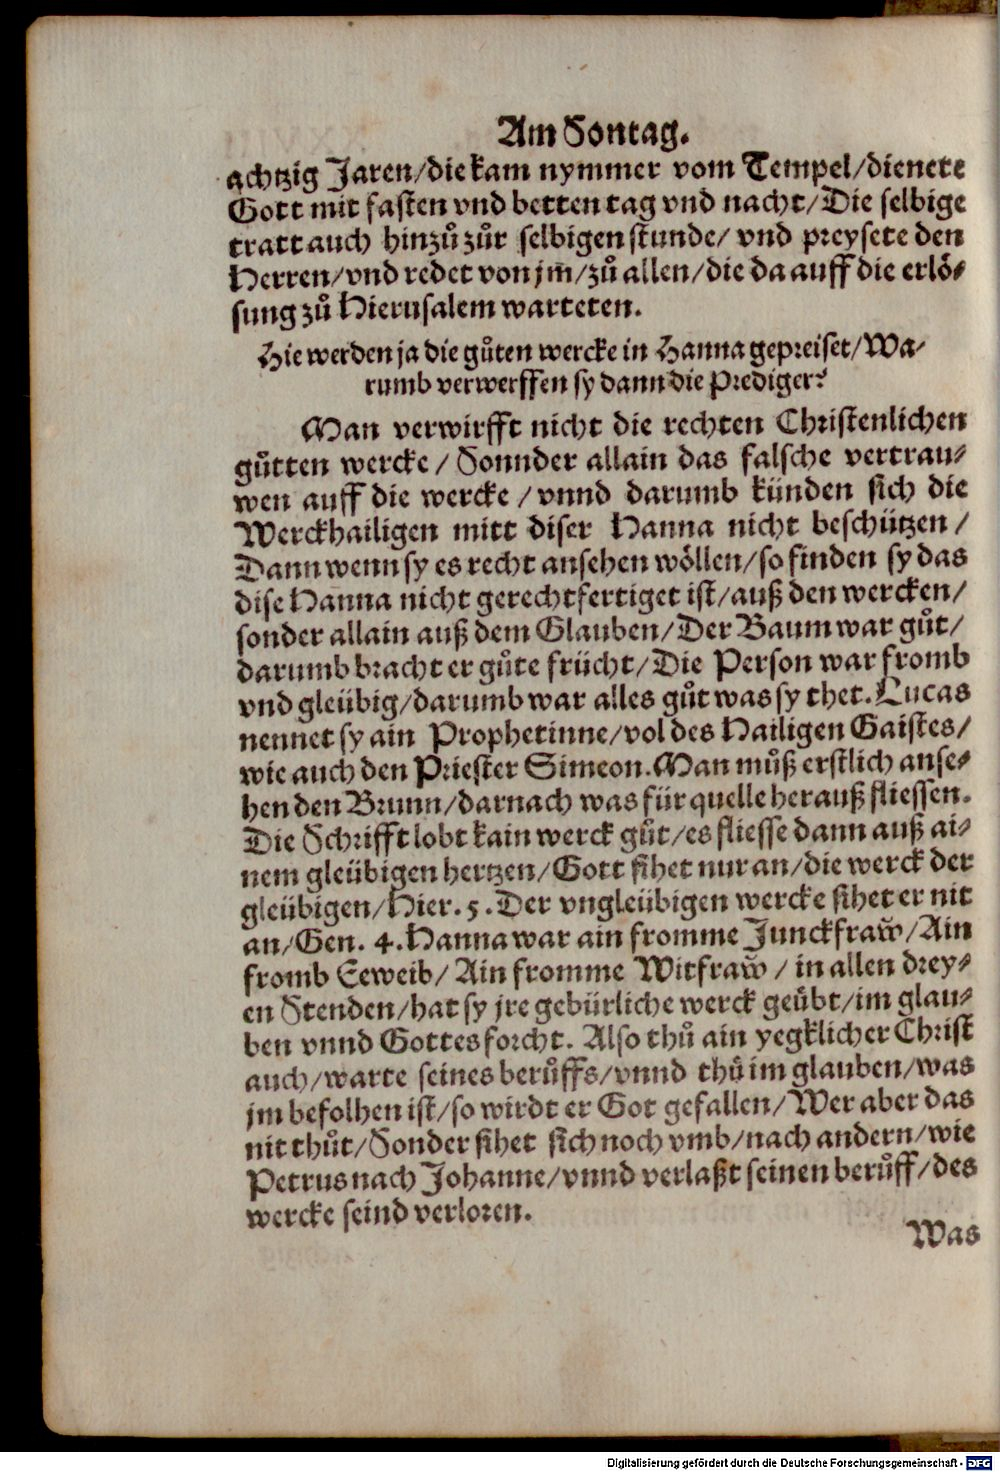 Am Sontag.
achtzig Jaren/die kam nymmer vom Tempel/dienete
Gott mit fasten vnd betten tag vnd nacht/Die selbige
tratt auch hinzů zůr selbigen stunde/ vnd preysete den
Herren/vnd redet von jm̄/zů allen/die da auff die erlö⸗
sung zů Hierusalem warteten.
Hie werden ja die gůten wercke in Hanna gepreiset/Wa⸗
rumb verwerffen sy dann die Prediger?
Man verwirfft nicht die rechten Christenlichen
gůtten wercke / Sonnder allain das falsche vertrau⸗
wen auff die wercke / vnnd darumb künden sich die
Werckhailigen mitt diser Hanna nicht beschützen /
Dann wenn sy es recht ansehen wöllen/so finden sy das
dise Hanna nicht gerechtfertiget ist/auß den wercken/
sonder allain auß dem Glauben/Der Baum war gůt/
darumb bracht er gůte frücht/Die Person war fromb
vnd gleübig/darumb war alles gůt was sy thet. Lucas
nennet sy ain Prophetinne/vol des Hailigen Gaistes/
wie auch den Priester Simeon. Man můß erstlich anse⸗
hen den Brunn/darnach was für quelle herauß fliessen.
Die Schrifft lobt kain werck gůt/es fliesse dann auß ai⸗
nem gleübigen hertzen/Gott sihet nur an/die werck der
gleübigen/Hier. 5. Der vngleübigen wercke sihet er nit
an/Gen. 4. Hanna war ain fromme Junckfraw̃/Ain
fromb Eeweib/ Ain fromme Witfraw̃ / in allen drey⸗
en Stenden/hat sy jre gebürliche werck geübt/im glau⸗
ben vnnd Gottes forcht. Also thů ain yegklicher Christ
auch/warte seines berůffs/vnnd thů im glauben/was
jm befolhen ist/so wirdt er Got gefallen/Wer aber das
nit thůt/Sonder sihet sich noch vmb/nach andern/wie
Petrus nach Johanne/vnnd verlaßt seinen berůff/des
wercke seind verloren.
Was
Digitalisierung gefördert durch die Deutsche Forschungsgemeinschaft - DFG